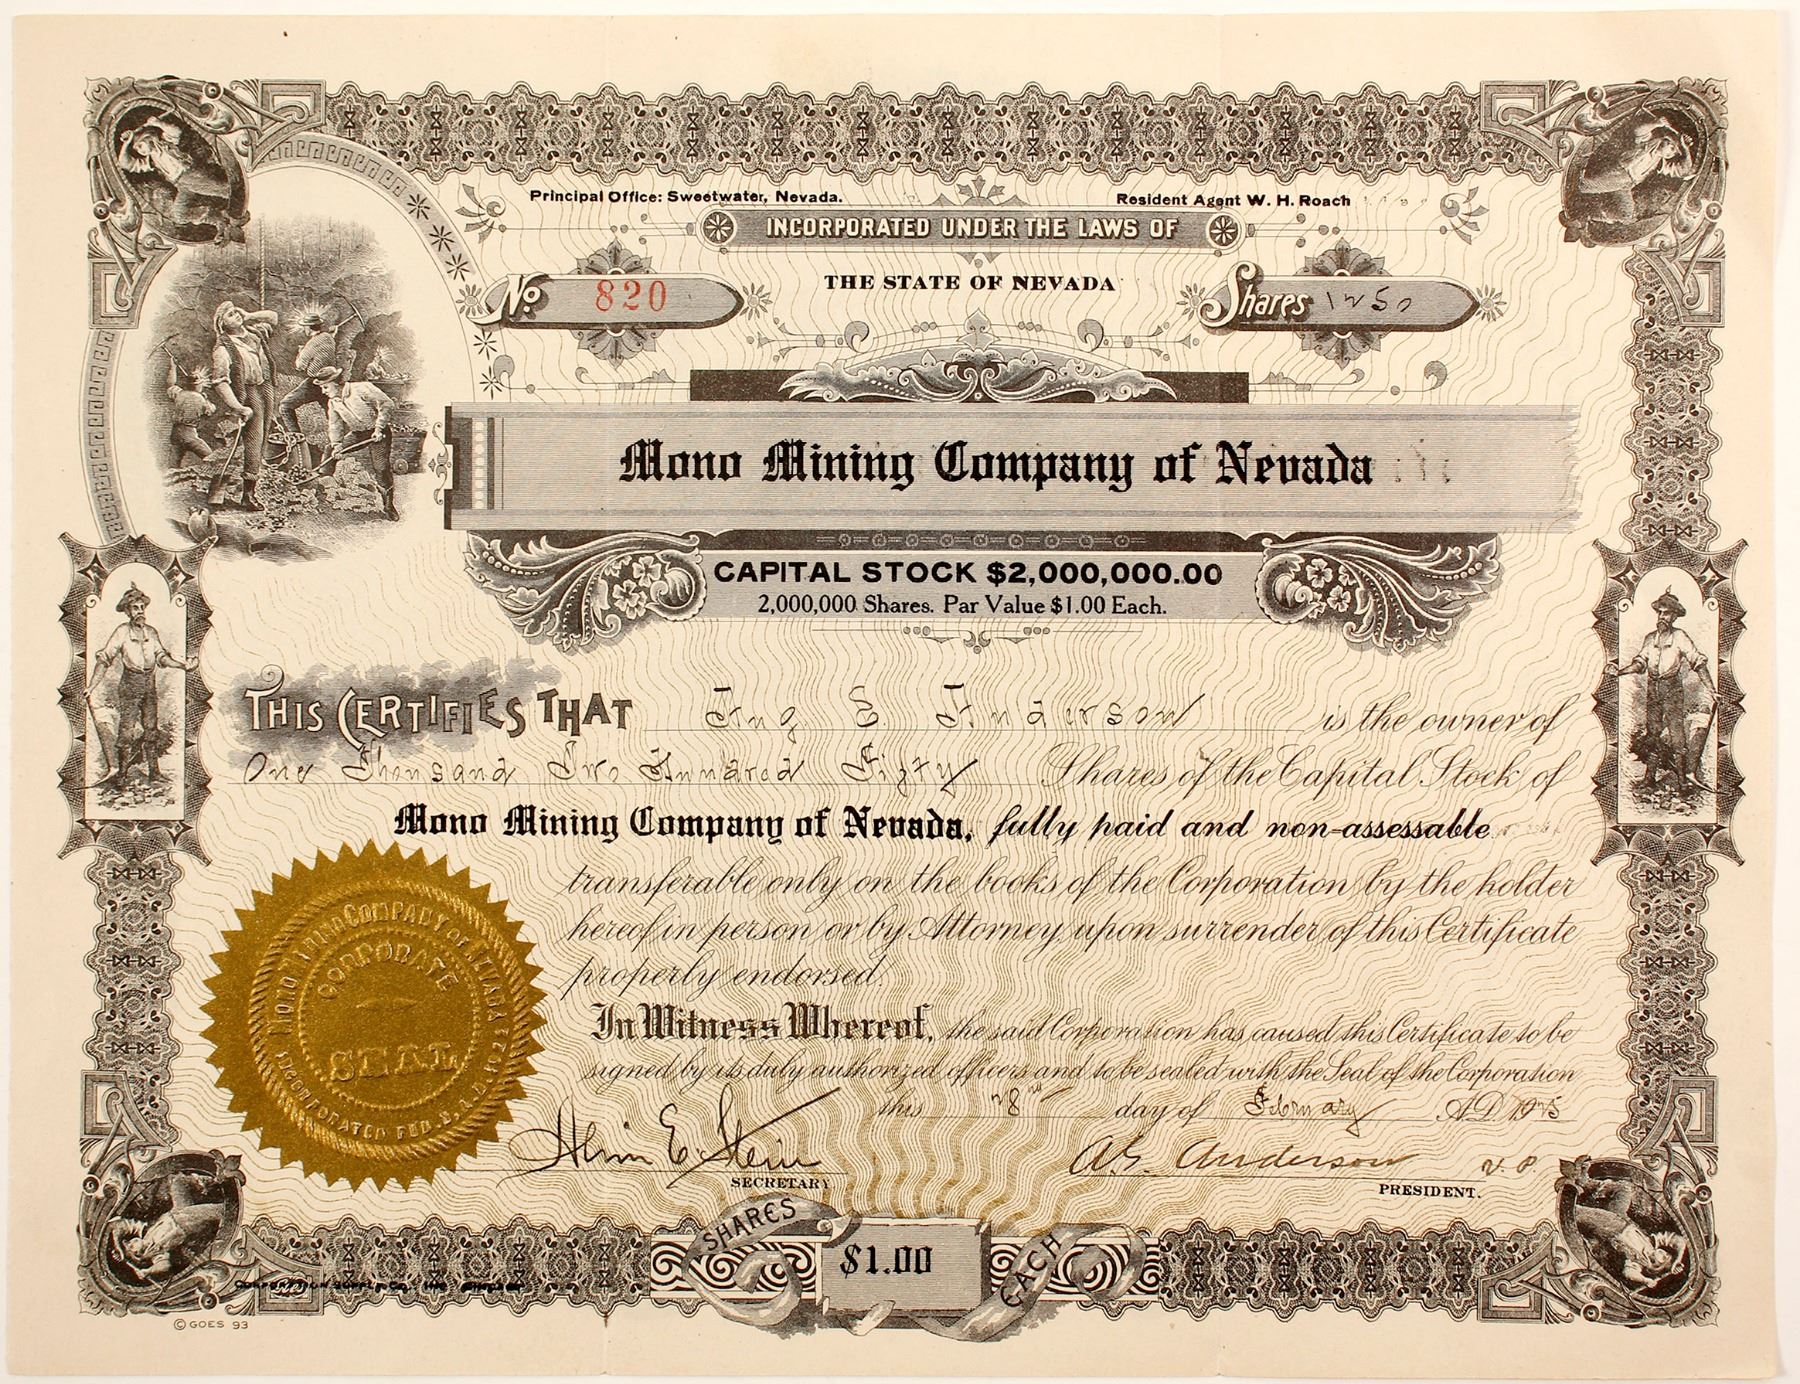 Principal Office: Sweetwater, Nevada.
Resident Agent W. H. Roach
INCORPORATED UNDER THE LAWS OF
THE STATE OF NEVADA
No. 820
Shares 1250
Mono Mining Company of Nevada
CAPITAL STOCK $2,000,000.00
2,000,000 Shares. Par Value $1.00 Each.
THIS CERTIFIES THAT E. Anderson is the owner of
One Thousand Two Hundred Fifty Shares of the Capital Stock of
Mono Mining Company of Nevada, fully paid and non-assessable
transferable only on the books of the Corporation by the holder
hereof in person or by Attorney upon surrender of this Certificate
properly endorsed.
In Witness Whereof, the said Corporation has caused this Certificate to be
signed by its duly authorized officers and to be sealed with the Seal of the Corporation
this 28 day of February A.D. 1925
Alvin E. Stein
SECRETARY
A. E. Anderson V. P.
PRESIDENT.
MONO MINING COMPANY OF NEVADA
CORPORATE
SEAL
INCORPORATED FEB.
SHARES
$1.00
EACH
CORPORATION SUPPLY CO.
© GOES 93